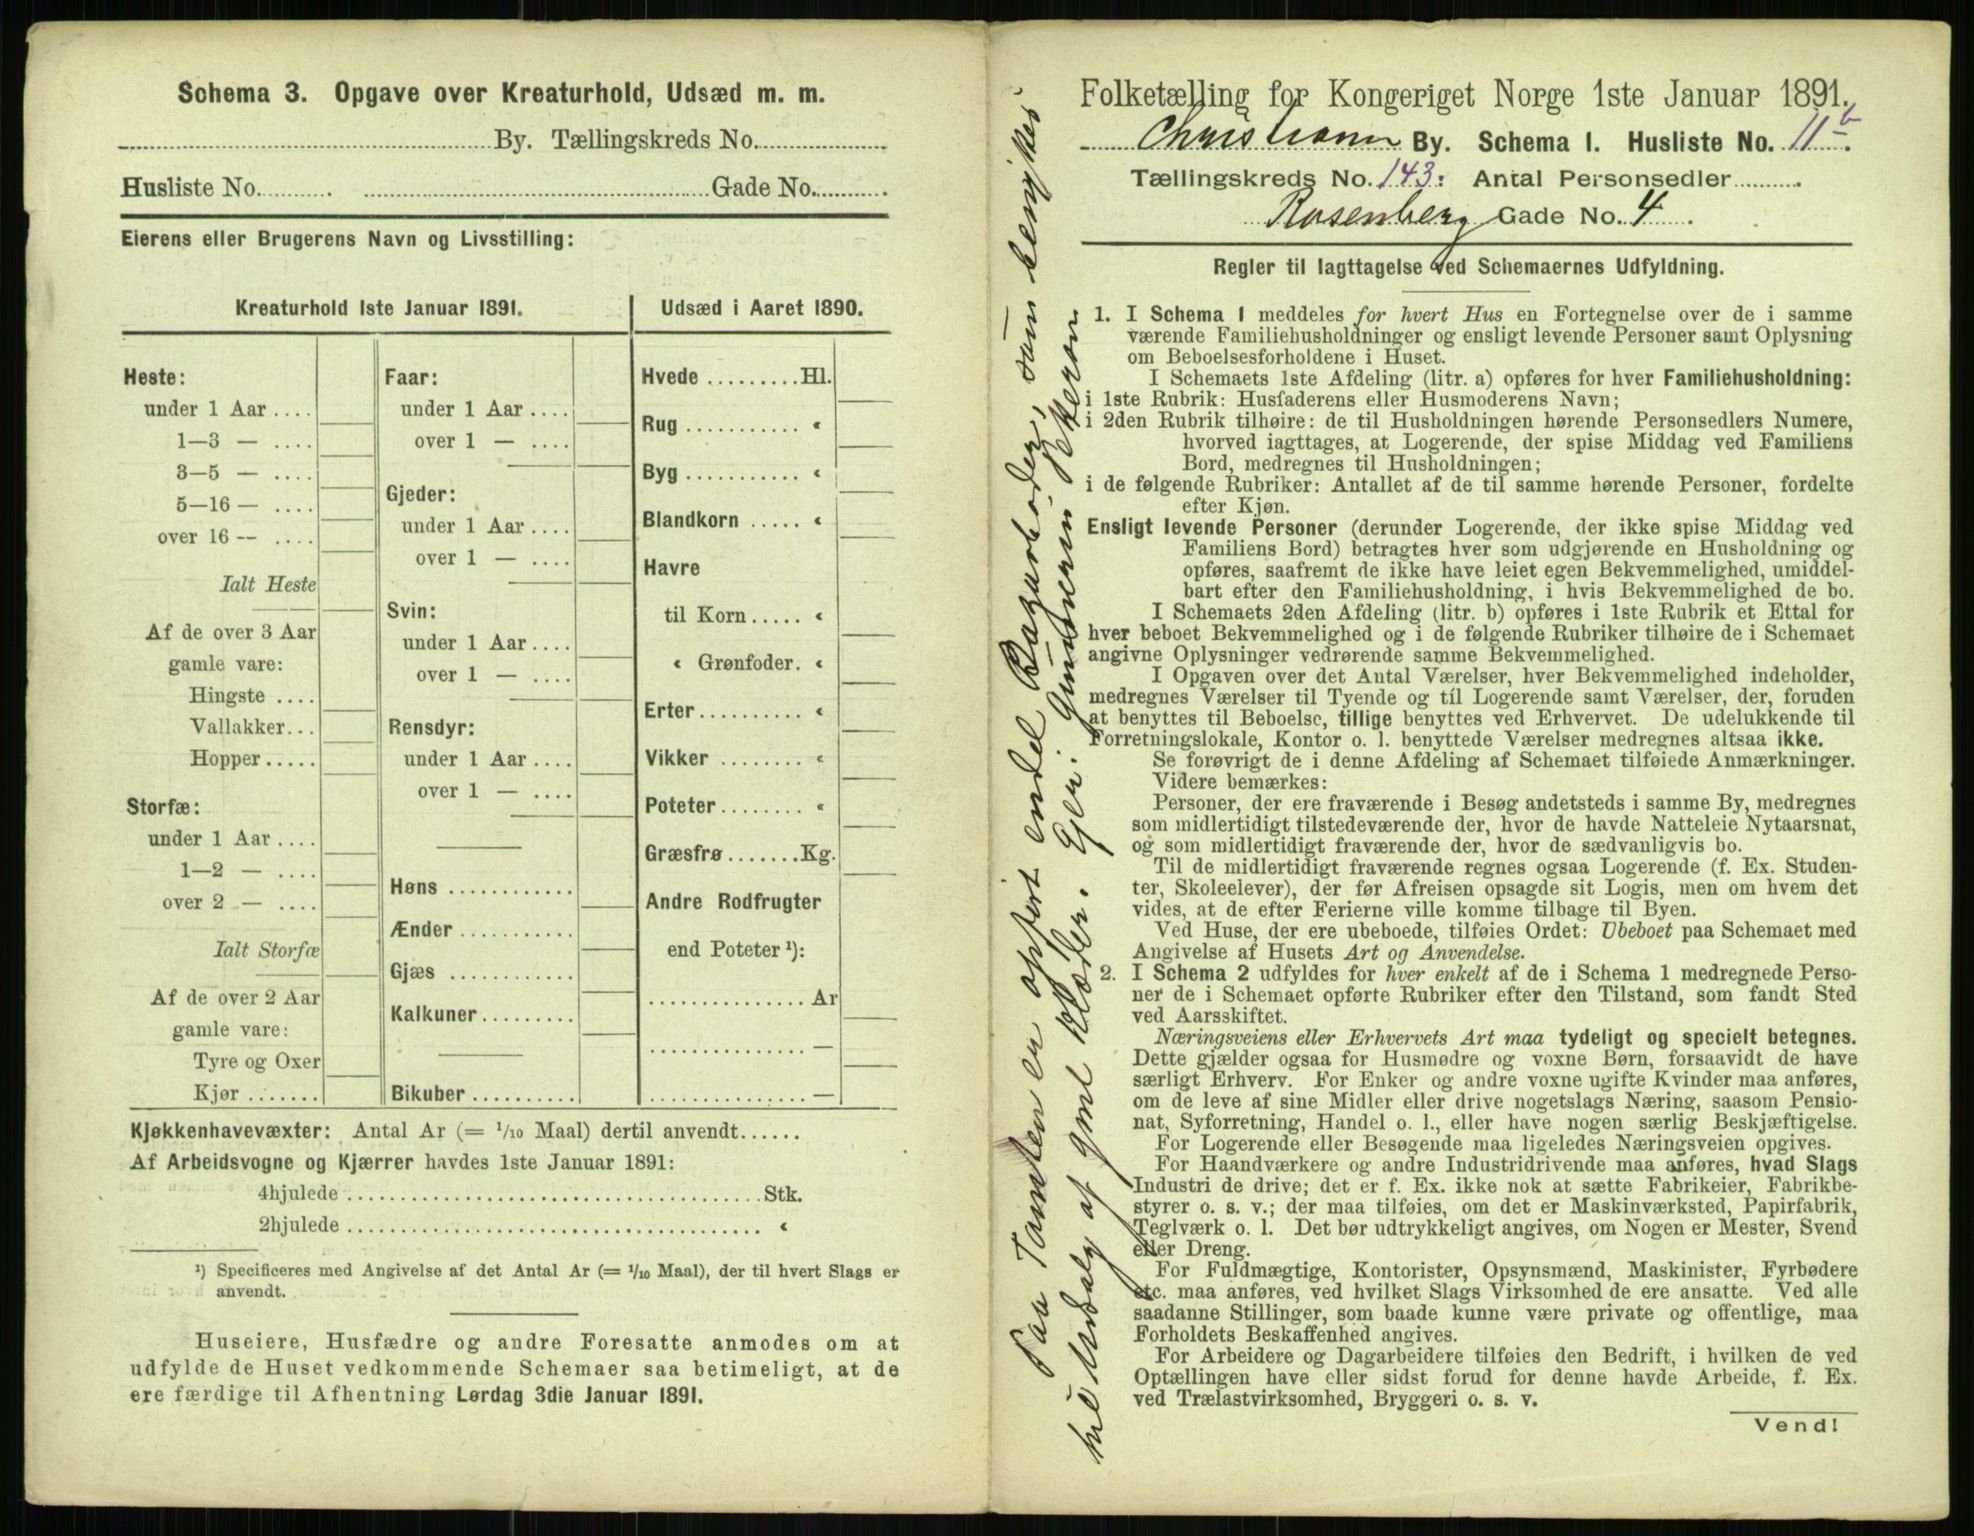 Schema 3. Opgave over Kreaturhold, Udsæd m. m.
By. Tællingskreds No.
Husliste No. Gade No.
Eierens eller Brugerens Navn og Livsstilling:
Kreaturhold 1ste Januar 1891.
Heste:
under 1 Aar ....
1—3 — ....
3—5 — ....
5—16 — ....
over 16 — ....
Ialt Heste
Af de over 3 Aar
gamle vare:
Hingste ....
Vallakker...
Hopper .....
Storfæ:
under 1 Aar ....
1—2 — ....
over 2 — ....
Ialt Storfæ
Af de over 2 Aar
gamle vare:
Tyre og Oxer
Kjør .......
Faar:
under 1 Aar ....
over 1 — ....
Gjeder:
under 1 Aar ....
over 1 — ....
Svin:
under 1 Aar ....
over 1 — ....
Rensdyr:
under 1 Aar ....
over 1 — ....
Høns ...........
Ænder ..........
Gjæs ...........
Kalkuner ........
Bikuber .........
Udsæd i Aaret 1890.
Hvede .........Hl.
Rug ........... «
Byg ........... «
Blandkorn ..... «
Havre
til Korn ..... «
« Grønfoder. «
Erter ......... «
Vikker ........ «
Poteter ........ «
Græsfrø .......Kg.
Andre Rodfrugter
end Poteter ¹):
............... Ar
............... —
............... —
Kjøkkenhavevæxter: Antal Ar (= 1/10 Maal) dertil anvendt......
Af Arbeidsvogne og Kjærrer havdes 1ste Januar 1891:
4hjulede ........................................Stk.
2hjulede ........................................ «
¹) Specificeres med Angivelse af det Antal Ar (= 1/10 Maal), der til hvert Slags er
anvendt.
Huseiere, Husfædre og andre Foresatte anmodes om at
udfylde de Huset vedkommende Schemaer saa betimeligt, at de
ere færdige til Afhentning Lørdag 3die Januar 1891.
Paa Tomten er opført endel Bazarboder, som benyttes
til Udsalg af gml Klæder. Eier: Gundersen Petterson
Folketælling for Kongeriget Norge 1ste Januar 1891.
Christiania By. Schema 1. Husliste No. 11b.
Tællingskreds No. 143. Antal Personsedler
Rosenberg Gade No. 4.
Regler til Iagttagelse ved Schemaernes Udfyldning.
1. I Schema 1 meddeles for hvert Hus en Fortegnelse over de i samme
værende Familiehusholdninger og ensligt levende Personer samt Oplysning
om Beboelsesforholdene i Huset.
I Schemaets 1ste Afdeling (litr. a) opføres for hver Familiehusholdning:
i 1ste Rubrik: Husfaderens eller Husmoderens Navn;
i 2den Rubrik tilhøire: de til Husholdningen hørende Personsedlers Numere,
hvorved iagttages, at Logerende, der spise Middag ved Familiens
Bord, medregnes til Husholdningen;
i de følgende Rubriker: Antallet af de til samme hørende Personer, fordelte
efter Kjøn.
Ensligt levende Personer (derunder Logerende, der ikke spise Middag ved
Familiens Bord) betragtes hver som udgjørende en Husholdning og
opføres, saafremt de ikke have leiet egen Bekvemmelighed, umiddel-
bart efter den Familiehusholdning, i hvis Bekvemmelighed de bo.
I Schemaets 2den Afdeling (litr. b) opføres i 1ste Rubrik et Ettal for
hver beboet Bekvemmelighed og i de følgende Rubriker tilhøire de i Schemaet
angivne Oplysninger vedrørende samme Bekvemmelighed.
I Opgaven over det Antal Værelser, hver Bekvemmelighed indeholder,
medregnes Værelser til Tyende og til Logerende samt Værelser, der, foruden
at benyttes til Beboelse, tillige benyttes ved Erhvervet. De udelukkende til
Forretningslokale, Kontor o. l. benyttede Værelser medregnes altsaa ikke.
Se forøvrigt de i denne Afdeling af Schemaet tilføiede Anmærkninger.
Videre bemærkes:
Personer, der ere fraværende i Besøg andetsteds i samme By, medregnes
som midlertidigt tilstedeværende der, hvor de havde Natteleie Nytaarsnat,
og som midlertidigt fraværende der, hvor de sædvanligvis bo.
Til de midlertidigt fraværende regnes ogsaa Logerende (f. Ex. Studen-
ter, Skoleelever), der før Afreisen opsagde sit Logis, men om hvem det
vides, at de efter Ferierne ville komme tilbage til Byen.
Ved Huse, der ere ubeboede, tilføies Ordet: Ubeboet paa Schemaet med
Angivelse af Husets Art og Anvendelse.
2. I Schema 2 udfyldes for hver enkelt af de i Schema 1 medregnede Perso-
ner de i Schemaet opførte Rubriker efter den Tilstand, som fandt Sted
ved Aarsskiftet.
Næringsveiens eller Erhvervets Art maa tydeligt og specielt betegnes.
Dette gjælder ogsaa for Husmødre og voxne Børn, forsaavidt de have
særligt Erhverv. For Enker og andre voxne ugifte Kvinder maa anføres,
om de leve af sine Midler eller drive nogetslags Næring, saasom Pensio-
nat, Syforretning, Handel o. l., eller have nogen særlig Beskjæftigelse.
For Logerende eller Besøgende maa ligeledes Næringsveien opgives.
For Haandværkere og andre Industridrivende maa anføres, hvad Slags
Industri de drive; det er f. Ex. ikke nok at sætte Fabrikeier, Fabrikbe-
styrer o. s. v.; der maa tilføies, om det er Maskinværksted, Papirfabrik,
Teglværk o. l. Det bør udtrykkeligt angives, om Nogen er Mester, Svend
eller Dreng.
For Fuldmægtige, Kontorister, Opsynsmænd, Maskinister, Fyrbødere
etc. maa anføres, ved hvilket Slags Virksomhed de ere ansatte. Ved alle
saadanne Stillinger, som baade kunne være private og offentlige, maa
Forholdets Beskaffenhed angives.
For Arbeidere og Dagarbeidere tilføies den Bedrift, i hvilken de ved
Optællingen have eller sidst forud for denne havde Arbeide, f. Ex.
ved Trælastvirksomhed, Bryggeri o. s. v.
Vend!